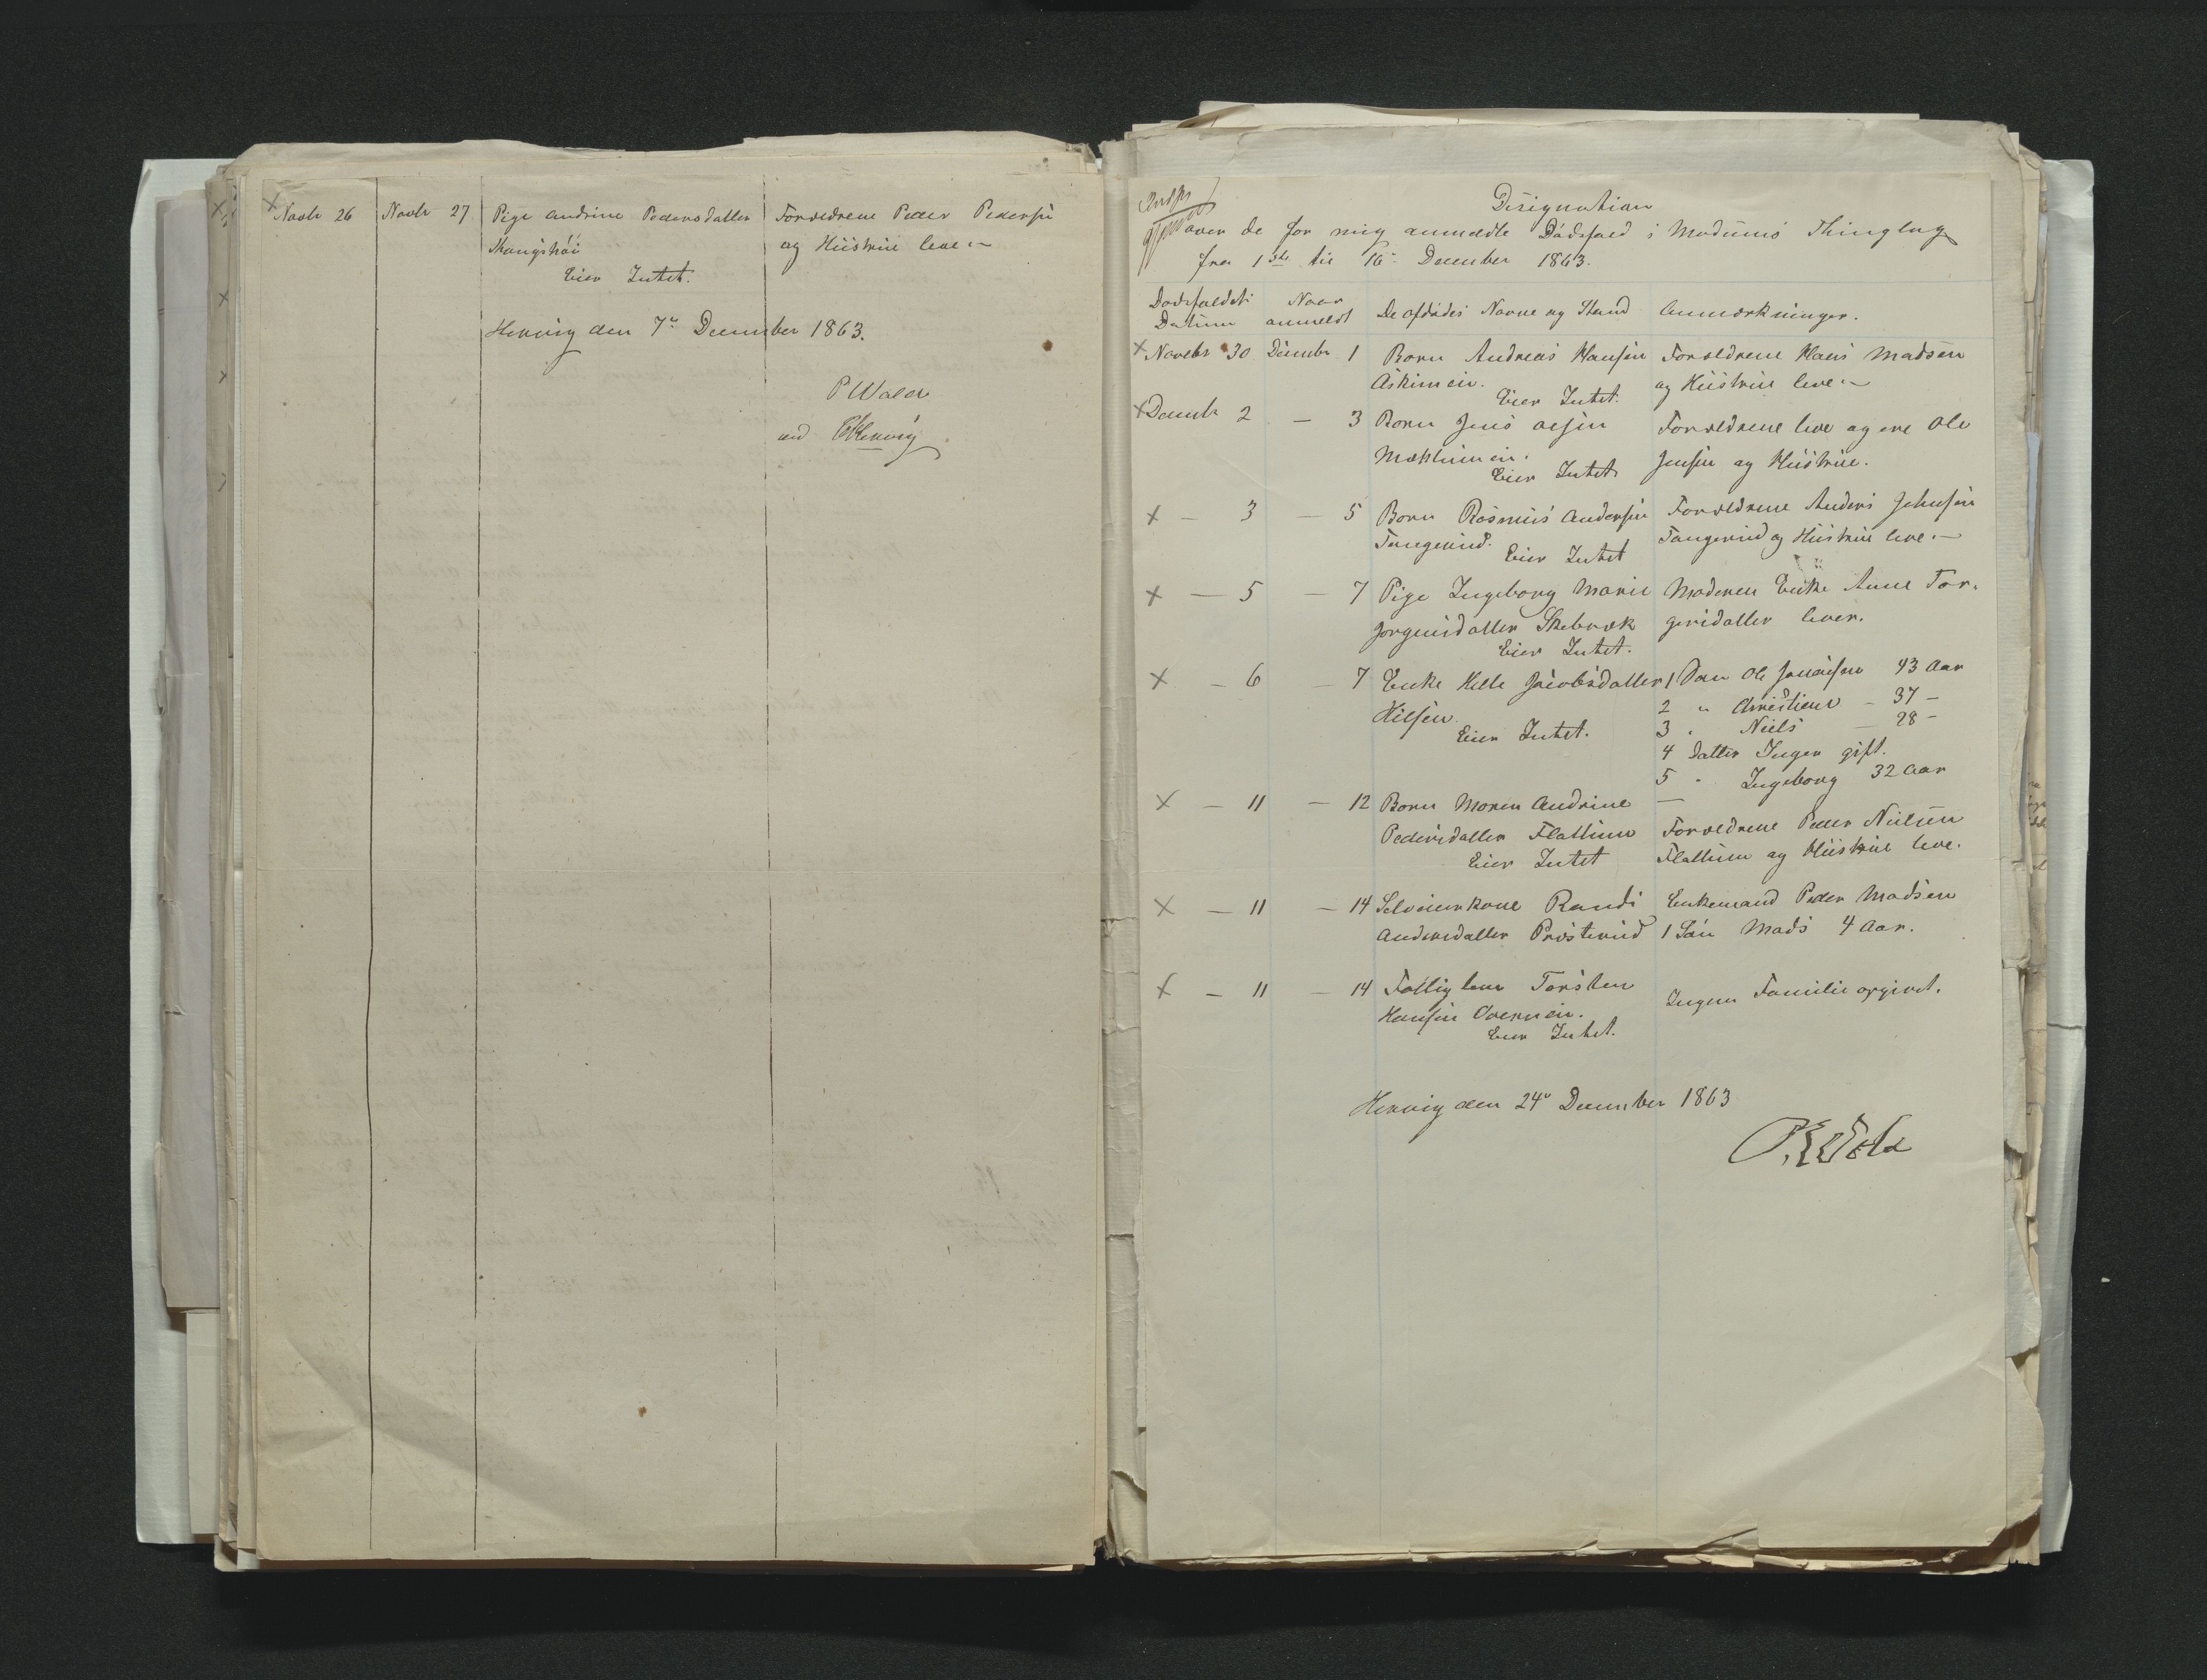 Novbr 26 Novbr 27. Pige Andrine Pedersdatter Forældrene Peder Pedersen
Skaugshøi og Hustrue leve.
Eier Intet.
Hervig den 7de December 1863.
P Wold
ved
Designation
over de for mig anmeldte Dødsfald i Modums Thinglag
fra 1ste til 16de December 1863.
Dødsfaldets Datum Naar anmeldt De afdødes Navne og Stand Anmærkninger.
Novebr 30 Decembr 1 Barn Andreas Hansen Forældrene Hans Madsen
Askimeie. og Hustrue leve.
Eier Intet.
Decembr 2 — 3 Barn Jens Olsen Forældrene leve og ere Ole
Jensen og Hustrue.
Eier Intet
— 3 — 5 Barn Rasmus Andersen Forældrene Anders Johnsen
Tangerud. Tangerud og Hustrue leve.
Eier Intet
— 5 — 7 Pige Ingeborg Marie Moderen Enke Anne Tor-
Jørgensdatter gersdatter lever.
Eier Intet.
— 6 — 7 Enke Helle Jacobsdatter 1 Søn Ole Jonassen 43 Aar
Hilsen. 2 " Christian - 37 -
3 " Niels — 28 -
Eier Intet.
4 Datter Inger gift.
5 " Ingeborg 32 Aar
— 11 — 12 Barn Maren Andrine —
Pedersdatter Flattum Forældrene Peder Nielsen
Eier Intet Flattum og Hustrue leve.
— 11 — 14 Selveierkone Randi Enkemand Peder Madsen
Andersdatter Prøsterud 1 Søn Mads 4 Aar.
— 11 — 14 Fattiglem Torsten Ingen Familie opgivet.
Hansen
Eier Intet.
Hervig den 24de December 1863
P. Wold